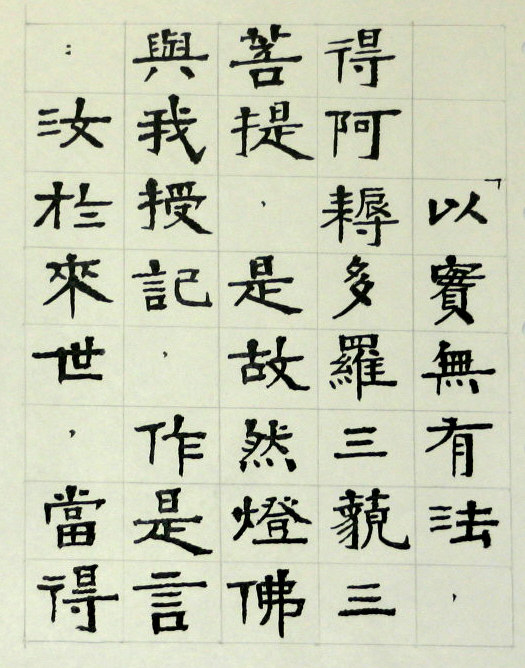 「以實無有法，
得阿耨多羅三藐三
菩提，是故然燈佛
與我授記，作是言
：汝於來世，當得